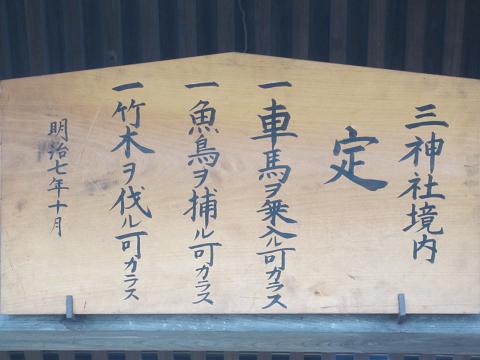 三神社境内
定
一車馬ヲ乗入ル可ガラス
一魚鳥ヲ捕ル可ガラス
一竹木ヲ伐ル可ガラス
明治七年十月